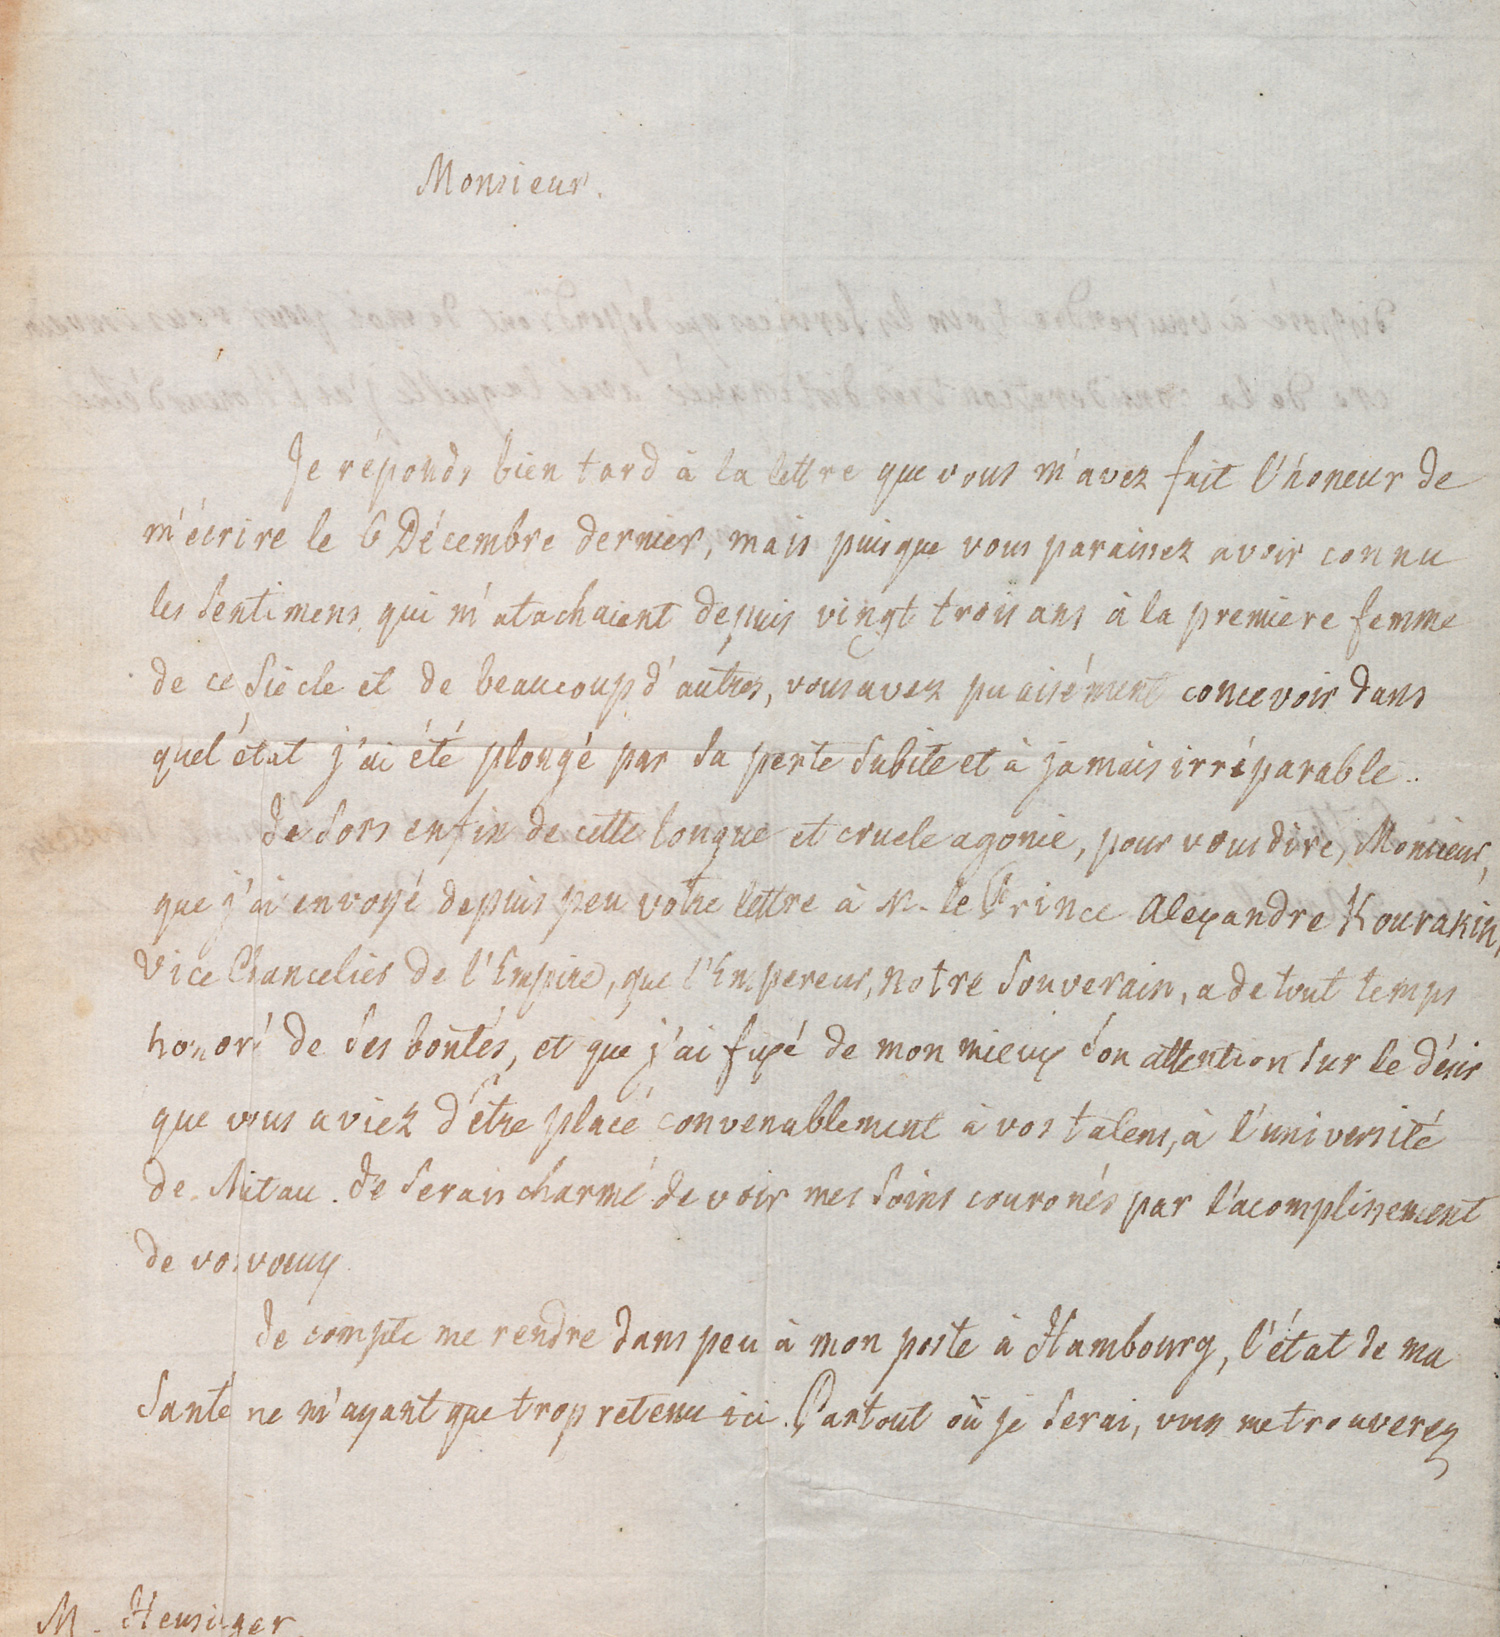 Monsieur.
Je réponds bien tard à la lettre que vous m'avez fait l'honeur de
m'écrire le 6 Décembre dernier, mais puisque vous paraissez avoir connu
les sentimens qui m'atachaient depuis vingt trois ans à la premiere femme
de ce siècle et de beaucoup d'autres, vous avez pu aisément concevoir dans
quel état j'ai été plongé par sa perte subite et à jamais irréparable.
Je sors enfin de cette longue et cruele agonie, pour vous dire, Monsieur,
que j'ai envoyé depuis peu votre lettre à M. le Prince Alexandre Kourakin,
Vice Chancelier de l'Empire, que l'Empereur, notre Souverain, a de tout temps
honoré de ses bontés, et que j'ai fixé de mon mieux son attention sur le désir
que vous aviez d'être placé convenablement à vos talens, à l'université
de Mitau. Je serais charmé de voir mes soins couronés par l'acomplissement
de vos vœux
Je compte me rendre dans peu à mon poste à Hambourg, l'état de ma
santé ne m'ayant que trop retenu ici. Partout où je serai, vous me trouverez
M. Heusiger